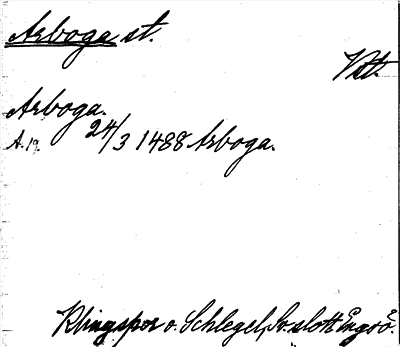 Arboga st.
Vstt.
Arboga.
A. 19. 24/3 1488 Arboga.
Klingspor o. Schlegel, Sv. slott Engsö.